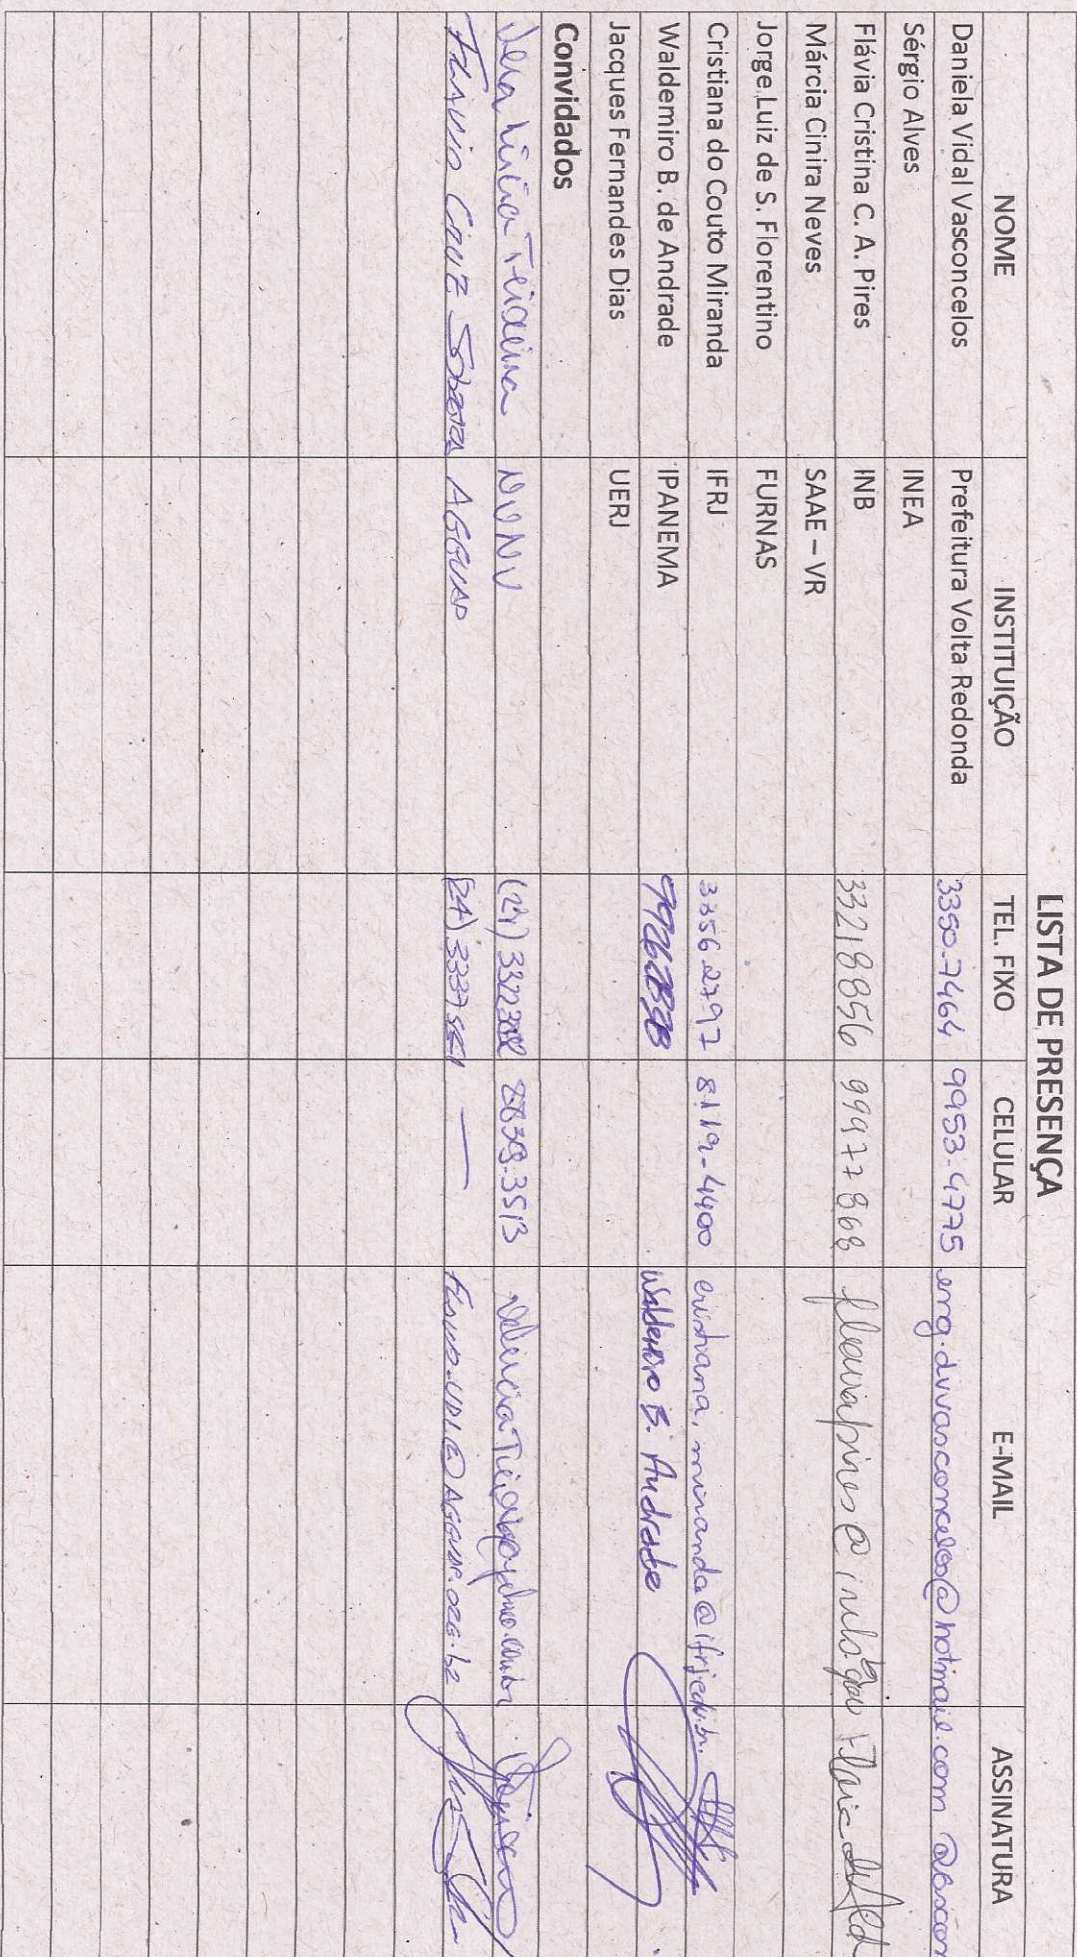 LISTA DE PRESENÇA
NOME INSTITUIÇÃO TEL. FIXO CELULAR E-MAIL ASSINATURA
Daniela Vidal Vasconcelos Prefeitura Volta Redonda 3350.7464 9953.9775 eng.dvvasconcelos@hotmail.com
Sérgio Alves INEA
Flávia Cristina C. A. Pires INB 33218856 99977868 flaviapires@inb.gov
Márcia Cinira Neves SAAE – VR
Jorge Luiz de S. Florentino FURNAS
Cristiana do Couto Miranda IFRJ 3356.2797 8119-4400 cristiana.miranda@ifrj.edu.br
Waldemiro B. de Andrade IPANEMA Waldemiro B. Andrade
Jacques Fernandes Dias UERJ
Convidados
Vera Lúcia Teixeira 8839.3513
Flavio Cruz AGEVAP (24) —